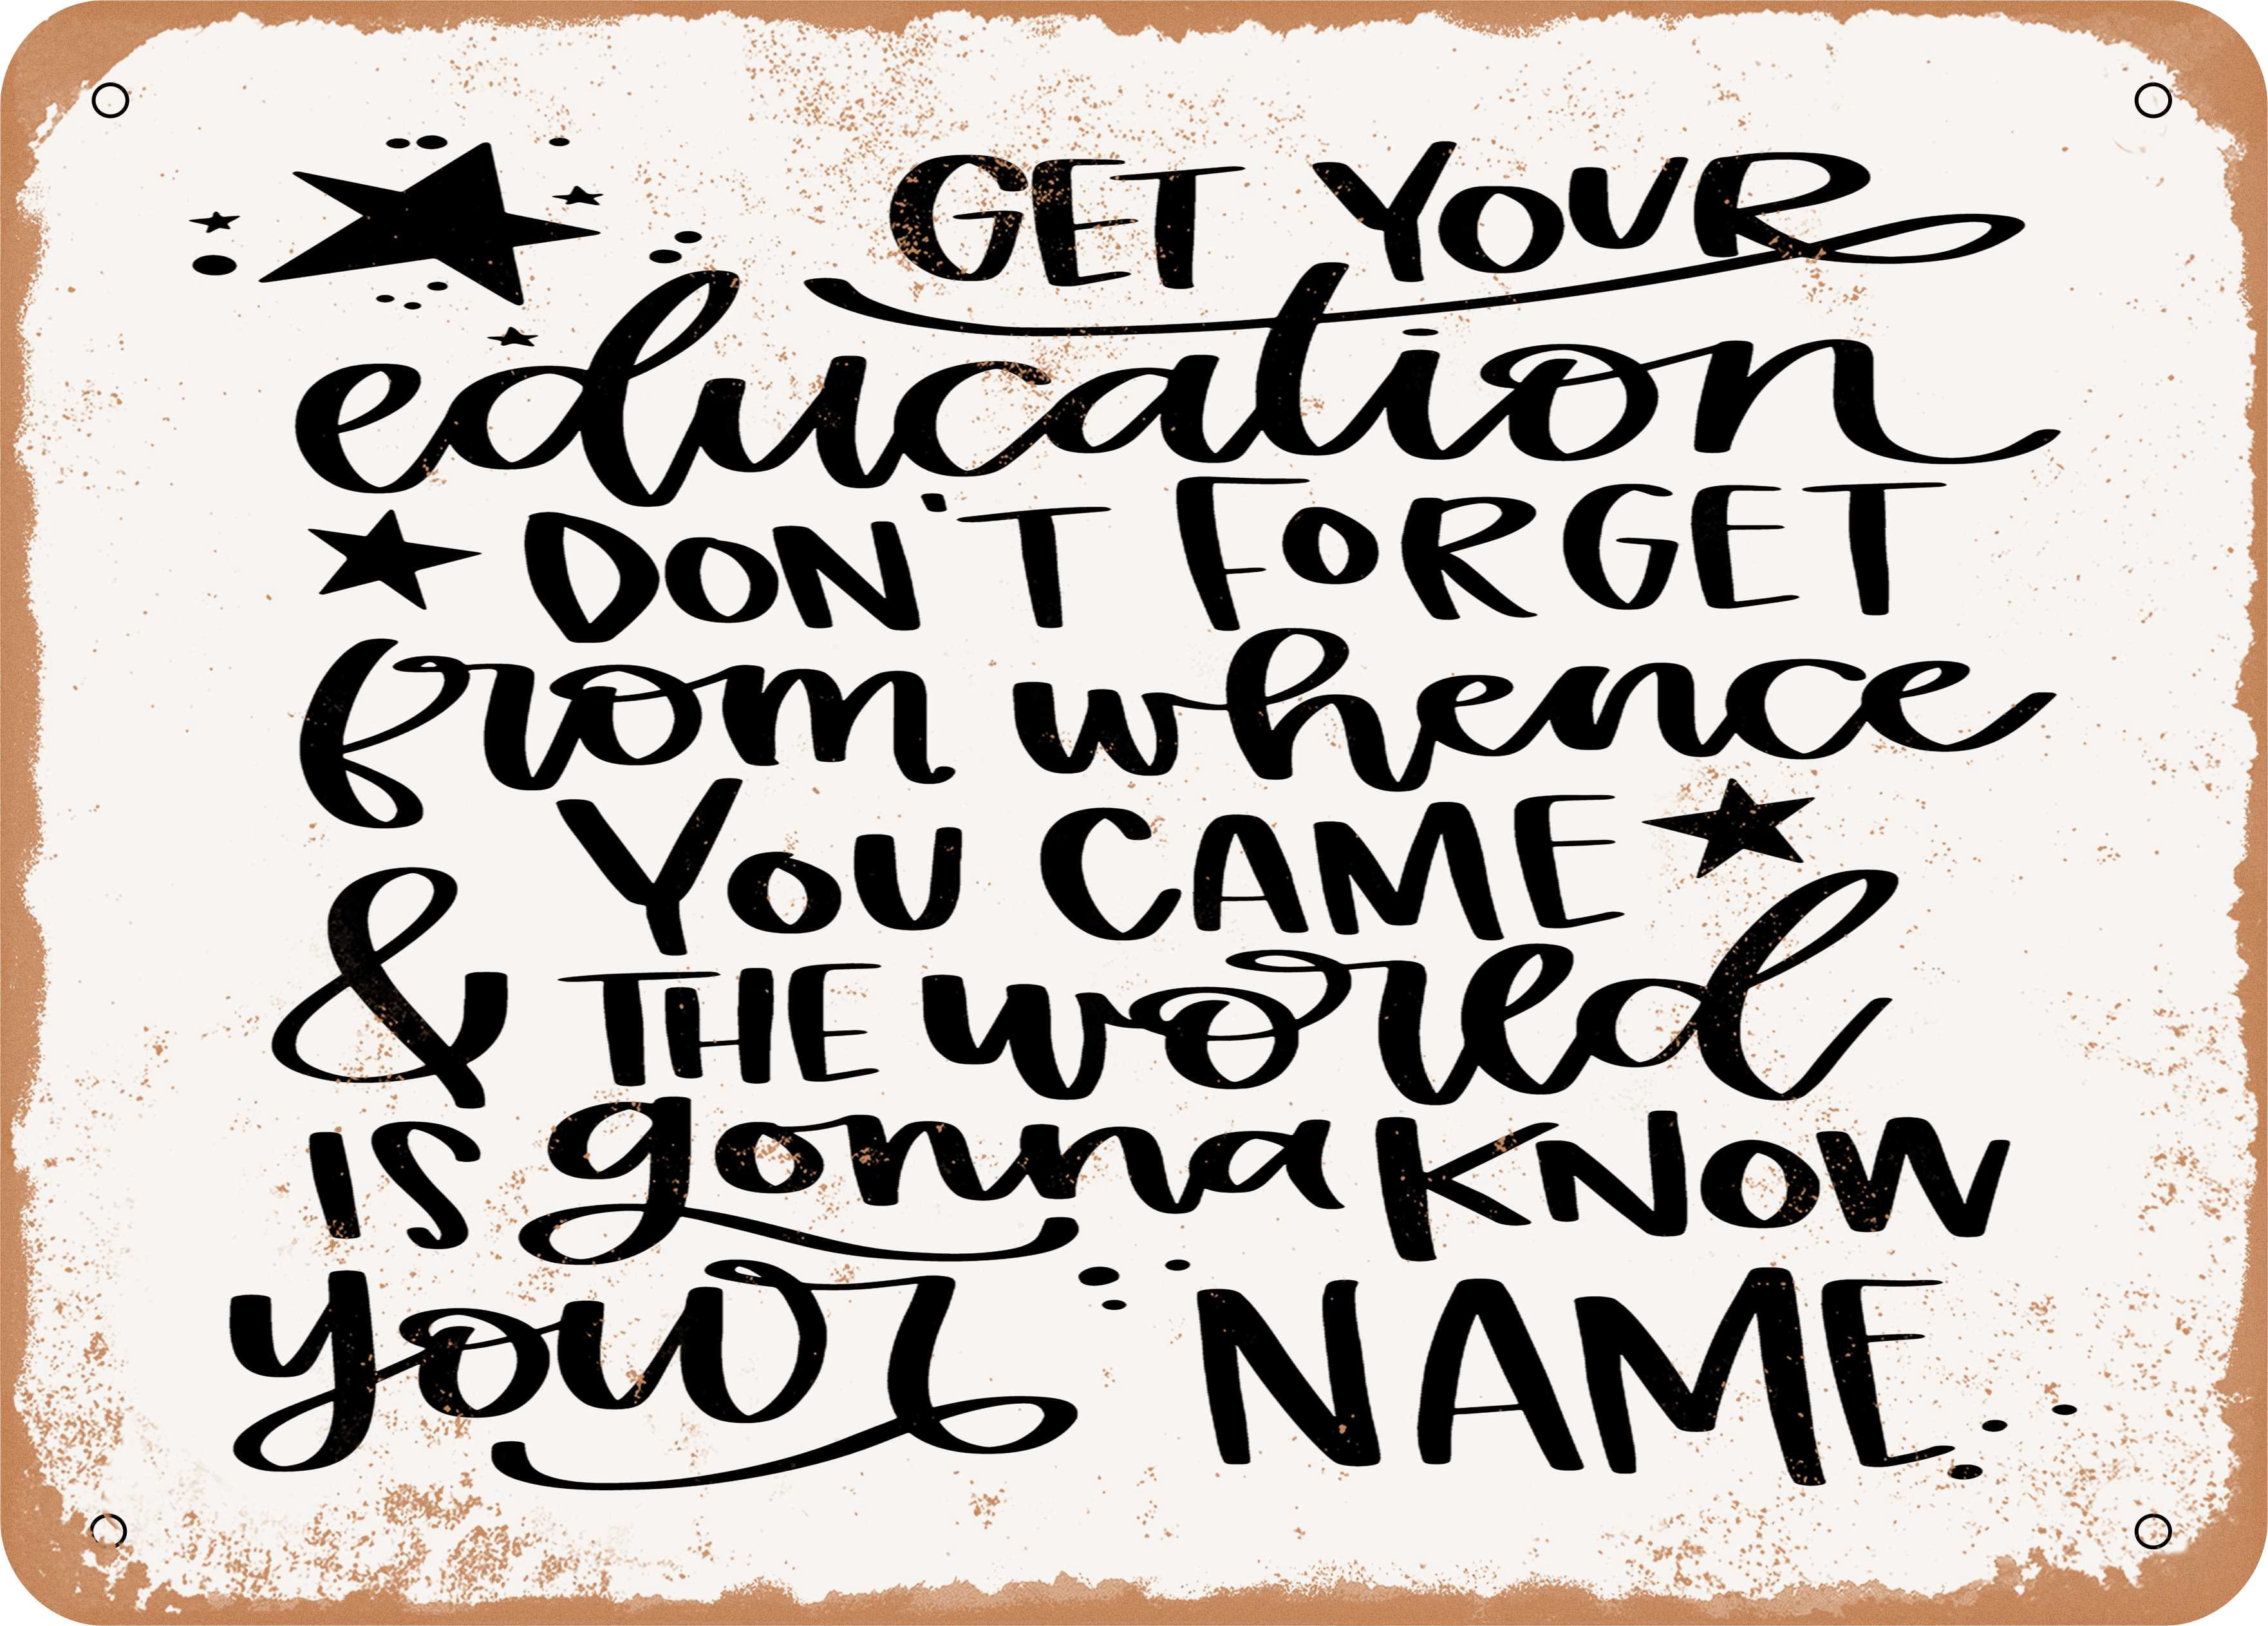 GET YOUR
education
DON'T FORGET
from whence
YOU CAME
& THE world
IS gonna KNOW
your NAME